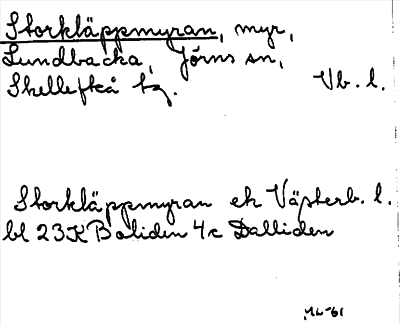 Storkläppmyran, myr,
Lundbacka, Jörns sn,
Skellefteå tg. Vb. l.
Storkläppmyran ek Västerb. l.
bl 23K Boliden 4c Dalliden
ML-61